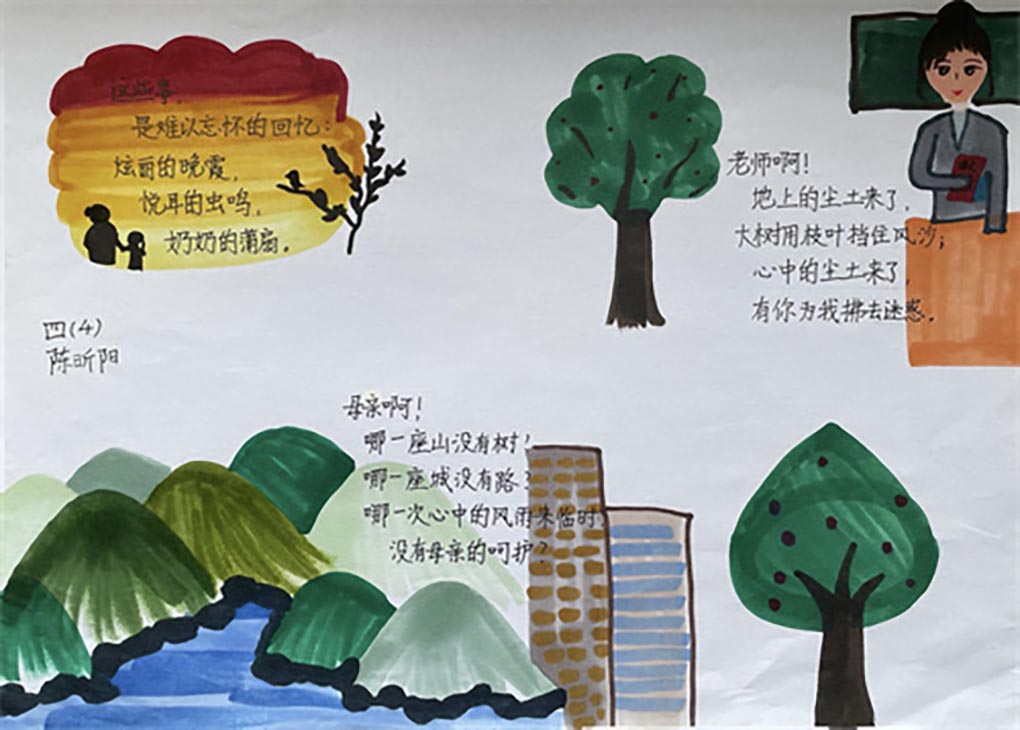 这些事，
是难以忘怀的回忆：
炫丽的晚霞，
悦耳的虫鸣，
奶奶的蒲扇。
四(4)
陈昕阳
老师啊！
地上的尘土来了，
大树用枝叶挡住风沙；
心中的尘土来了，
有你为我拂去迷惑。
母亲啊！
哪一座山没有树？
哪一座城没有路？
哪一次心中的风雨来临时，
没有母亲的呵护？